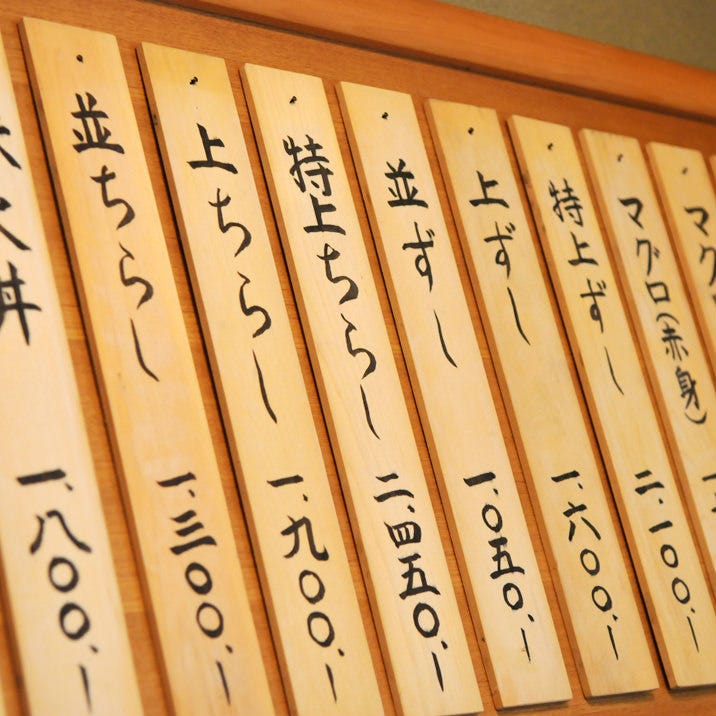 マグ
マグロ(赤身)
特上ずし 二、一〇〇、ー
上ずし 一、六〇〇、ー
並ずし 一、〇五〇、ー
特上ちらし 二、四五〇、ー
上ちらし 一、九〇〇、ー
並ちらし 一、三〇〇、ー
火丼 一、八〇〇、ー